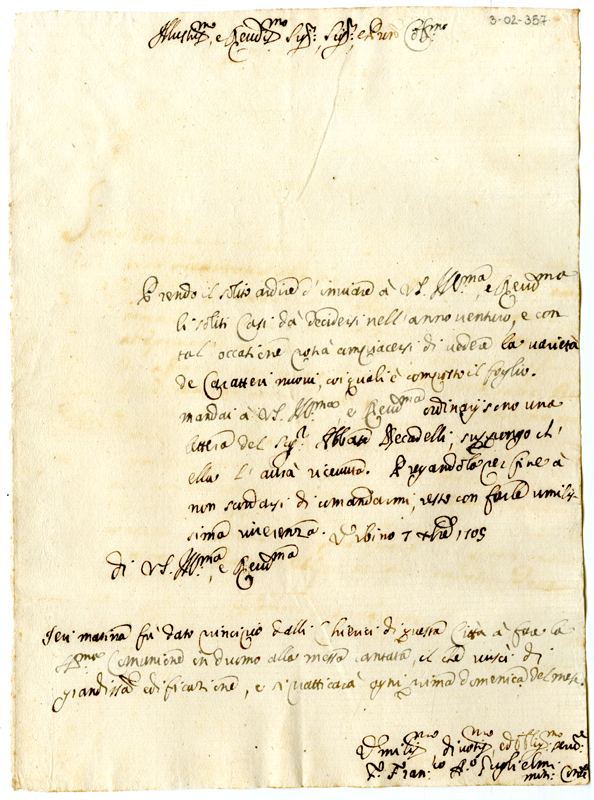 3-02-357
Illustr.mo, e Rev.mo Sig.r, Sig.r, e Pad.ne Col.mo
Prendo il solito ardire d'inviare à VS. Ill.ma, e Rev.ma
li soliti Casi da decidersi nell'anno venturo, e con
tal occatione potrà compiacersi di vedere la varietà
de Caratteri nuovi, coi quali è composto il foglio.
mandai à VS. Ill.ma e Rev.ma ordinarij sono una
lettera del Sig.r Abbate Beccadelli; suppongo ch'
ella l'aurà ricevuta. Pregandola per fine à
non scordarsi di comandarmi, resto con farle umilis-
sima riverenza. Urbino 7 Xbre 1705
di VS. Ill.ma, e Rev.ma
Ieri matina fù dato principio dalli Chierici di questa Città à fare la
Comunione in duomo alla messa cantata, il che riuscì di
grandiss.a edificatione, e si pratticarà ogni prima domenica del mese.
Umiliss.mo, divotiss.mo, ed obblig.mo
F. Fran.co A.o Guglielmi
min. Conv.